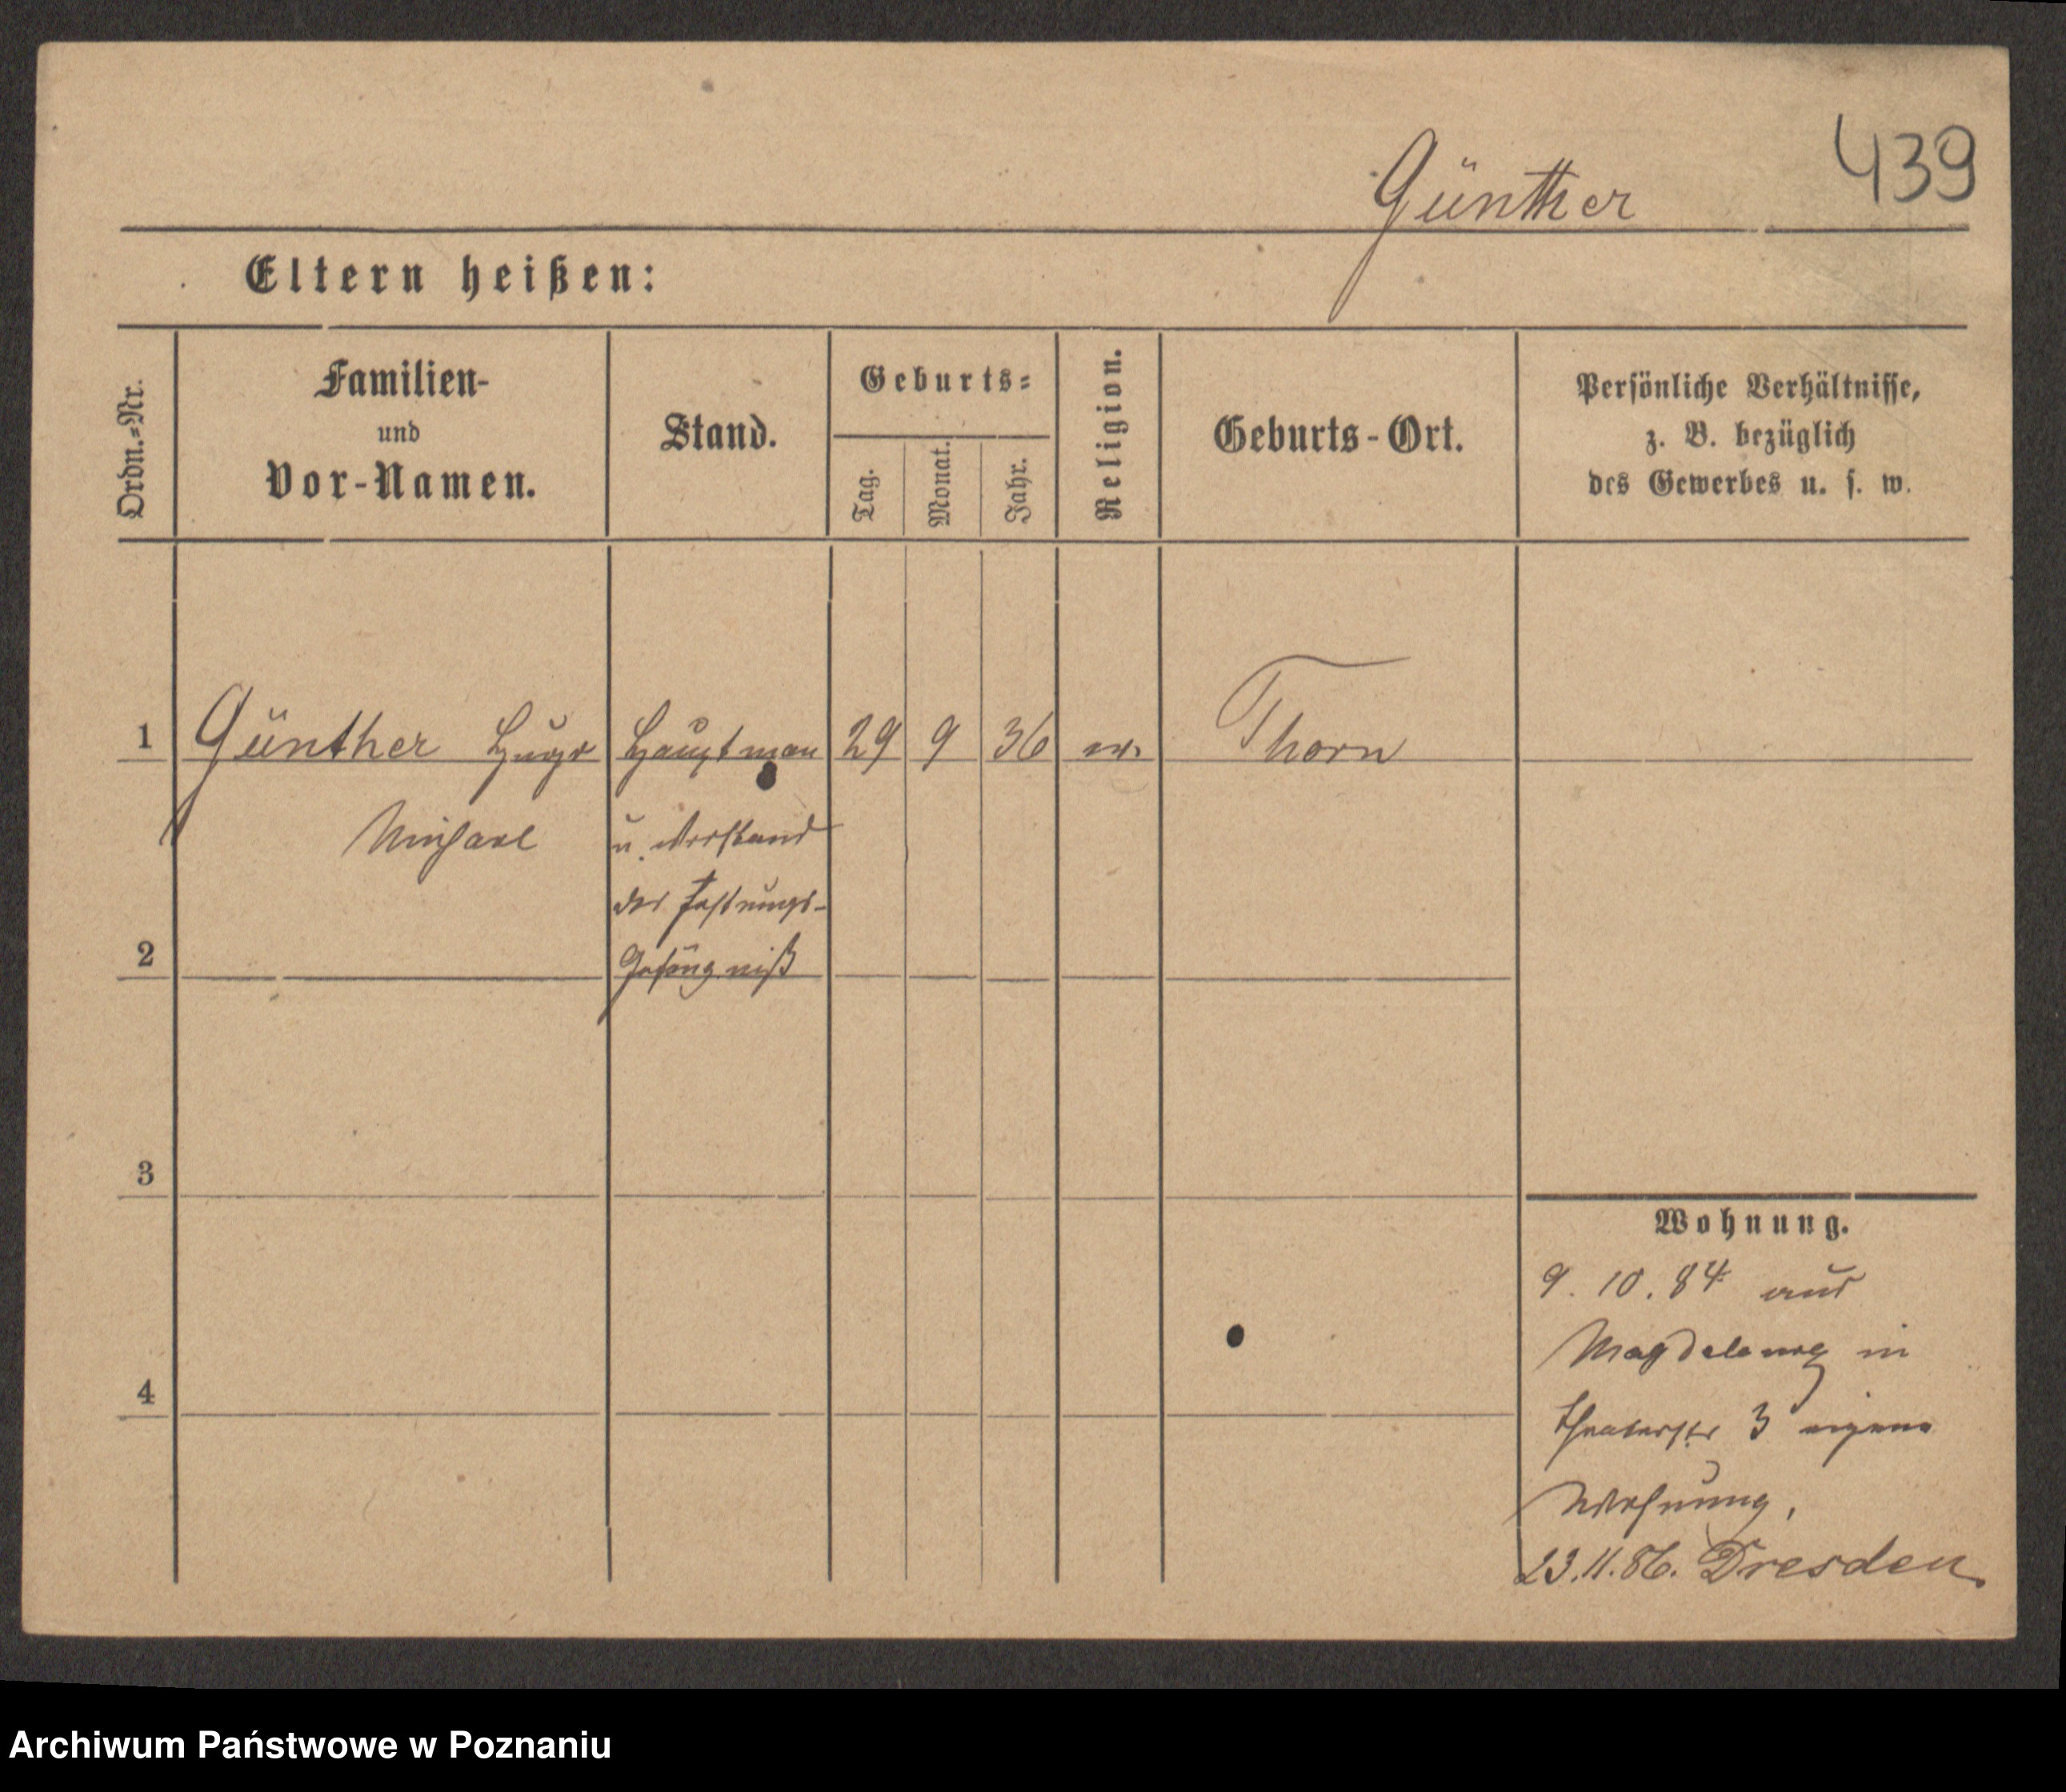 439
Günther
Eltern heißen:
Ordn.=Nr.
Familien-
und
Vor-Namen.
Stand.
Geburts=
Tag.
Monat.
Jahr.
Religion.
Geburts-Ort.
Persönliche Verhältnisse,
z. B. bezüglich
des Gewerbes u. s. w.
1 Günther Hugo Hauptman 29 9 36 ev. Thorn
Michael
u. Vorstand
des Festungs-
2 Gefängniß
3
4
Wohnung.
9. 10. 84 aus
Magdeburg in
Theaterstr 3 eigene
Wohnung,
23. 11. 86. Dresden.
Archiwum Państwowe w Poznaniu